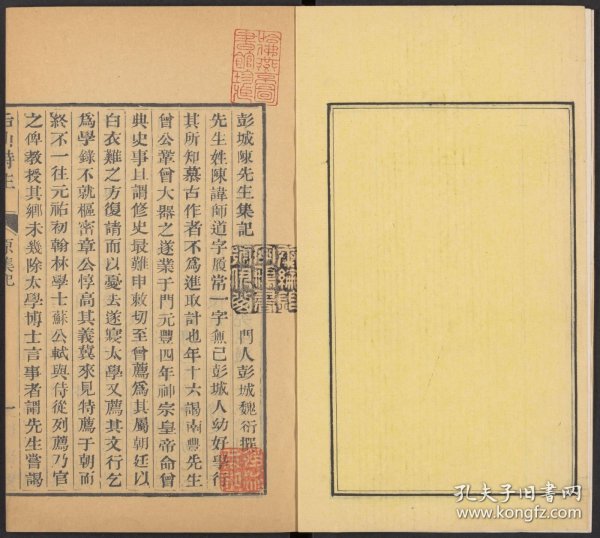 彭城陳先生集記
門人彭城魏衍撰
先生姓陳諱師道字履常一字無己彭城人幼好學行
其所知慕古作者不爲進取計也年十六謁南豐先生
曾公鞏曾大器之遂業于門元豐四年神宗皇帝命曾
典史事且謂修史最難申敕切至曾薦爲其屬朝廷以
白衣難之方復請而以憂去遂寢太學又薦其文行乞
爲學錄不就樞密章公惇高其義冀來見特薦于朝而
終不一往元祐初翰林學士蘇公軾與侍從列薦乃官
之俾教授其鄉未幾除太學博士言事者謂先生嘗謁
原集記
一
哈佛燕京圖書館珍藏
孔夫子旧书网
www.kongfz.com